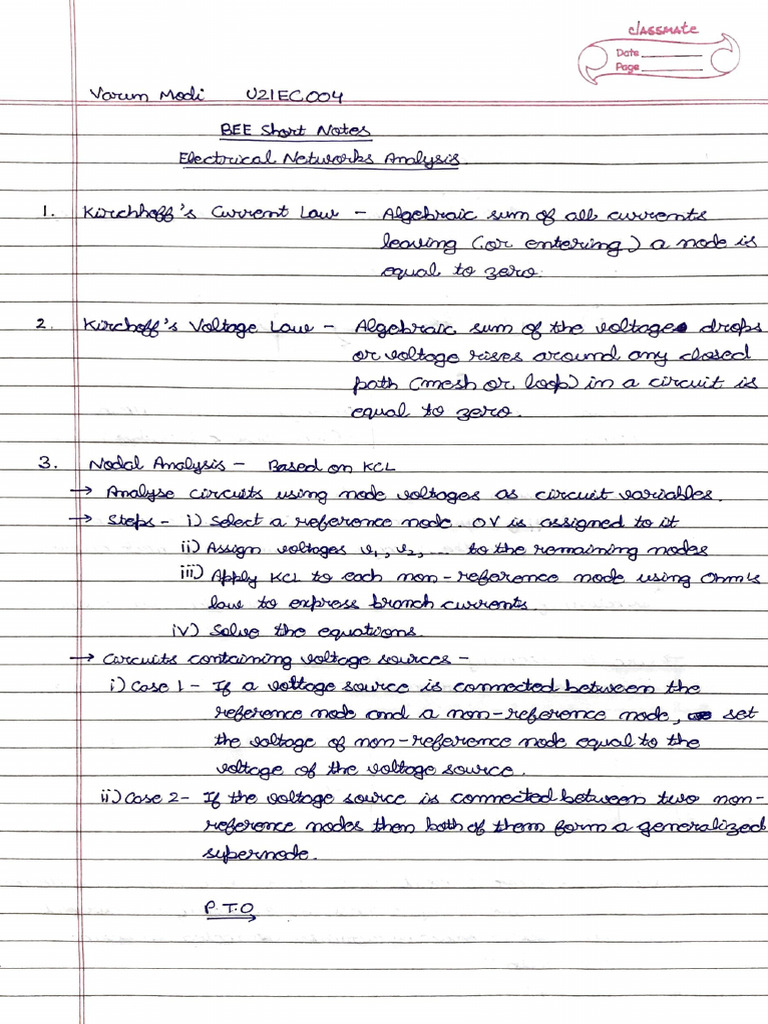 classmate
Date
Page
Varun Modi U21EC004
BEE Short Notes
Electrical Networks Analysis
1. Kirchhoff's Current Law - Algebraic sum of all currents
leaving (or entering) a node is
equal to zero.
2. Kirchoff's Voltage Law - Algebraic sum of the voltage drops
or voltage rises around any closed
path (mesh or loop) in a circuit is
equal to zero.
3. Nodal Analysis - Based on KCL
→ Analyse circuits using node voltages as circuit variables.
→ Steps - i) Select a reference node. 0V is assigned to it
ii) Assign voltages v₁, v₂, ... to the remaining nodes
iii) Apply KCL to each non-reference node using Ohm's
law to express branch currents
iv) Solve the equations.
→ Circuits containing voltage sources -
i) Case 1 - If a voltage source is connected between the
reference node and a non-reference node, set
the voltage of non-reference node equal to the
voltage of the voltage source.
ii) Case 2 - If the voltage source is connected between two non-
reference nodes then both of them form a generalized
supernode.
P.T.O